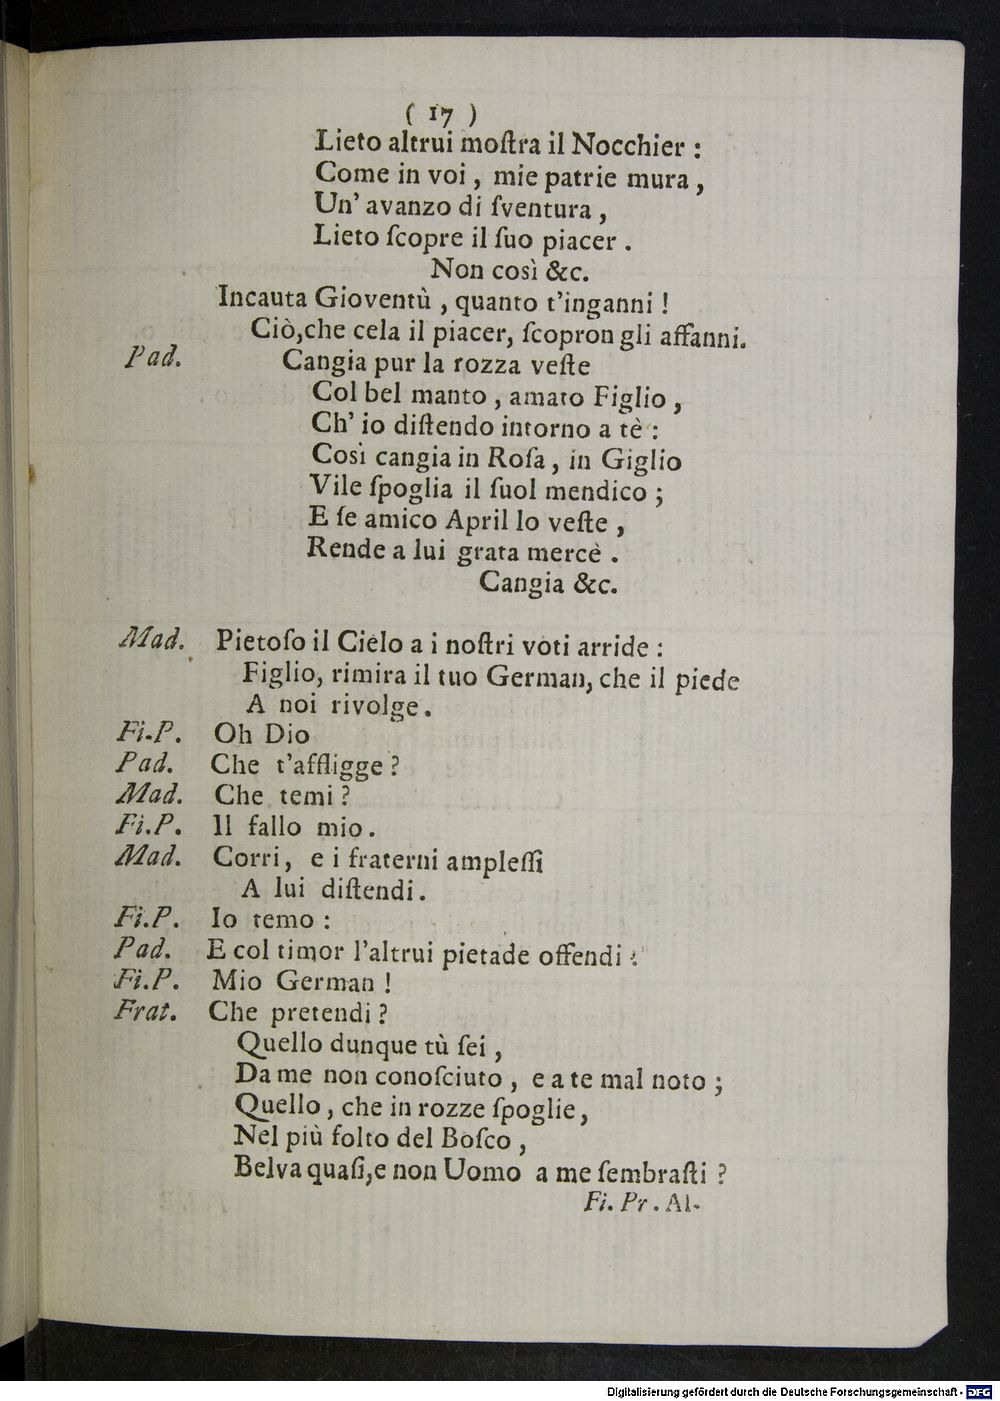 ( 17 )
Lieto altrui moſtra il Nocchier :
Come in voi , mie patrie mura ,
Un' avanzo di ſventura ,
Lieto ſcopre il ſuo piacer .
Non così &c.
Incauta Gioventù , quanto t'inganni !
Ciò,che cela il piacer, ſcopron gli affanni.
Pad. Cangia pur la rozza veſte
Col bel manto , amato Figlio ,
Ch' io diſtendo intorno a tè :
Così cangia in Roſa , in Giglio
Vile ſpoglia il ſuol mendico ;
E ſe amico April lo veſte ,
Rende a lui grata mercè .
Cangia &c.
Mad. Pietoſo il Cielo a i noſtri voti arride :
Figlio, rimira il tuo German, che il piede
A noi rivolge .
Fi.P. Oh Dio
Pad. Che t'affligge ?
Mad. Che temi ?
Fi.P. Il fallo mio .
Mad. Corri , e i fraterni ampleſſi
A lui diſtendi .
Fi.P. Io temo :
Pad. E col timor l'altrui pietade offendi :
Fi.P. Mio German !
Frat. Che pretendi ?
Quello dunque tù ſei ,
Da me non conoſciuto , e a te mal noto ;
Quello , che in rozze ſpoglie ,
Nel più folto del Boſco ,
Belva quaſi,e non Uomo a me ſembraſti ?
Fi. Pr . Al-
Digitalisierung gefördert durch die Deutsche Forschungsgemeinschaft - DFG